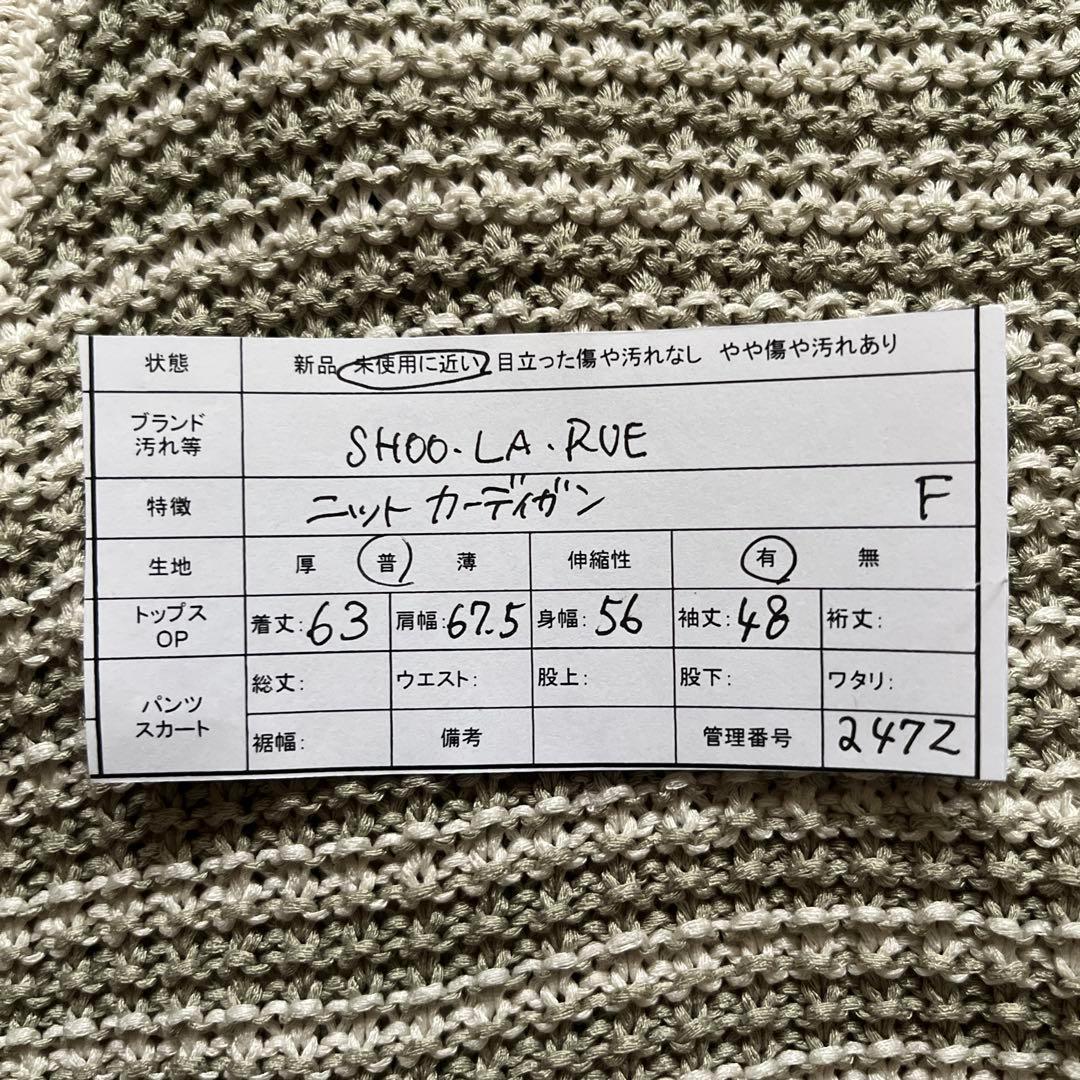 状態 新品 未使用に近い 目立った傷や汚れなし やや傷や汚れあり
ブランド
汚れ等 SHOO・LA・RUE
特徴 ニットカーディガン F
生地 厚 普 薄 伸縮性 有 無
トップス
OP 着丈:63 肩幅:67.5 身幅:56 袖丈:48 裄丈:
パンツ
スカート
総丈: ウエスト: 股上: 股下: ワタリ:
裾幅: 備考 管理番号 247Z